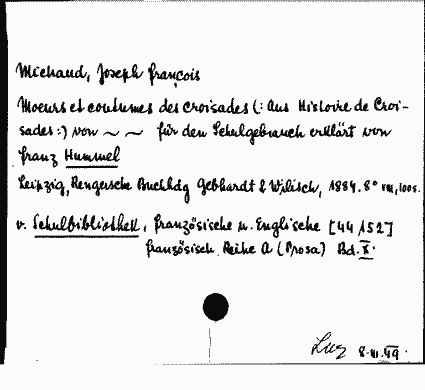 Michaud, Joseph François
Moeurs et coutumes des croisades (: Aus Histoire de Croi-
sades :) von ~ ~ für den Schulgebrauch erklärt von
Franz Hummel
Leipzig, Rengersche Buchhdg Gebhardt & Wilisch, 1884. 8° VIII, 100 S.
v. Schulbibliothek, französische u. Englische [44 152]
französisch. Reihe A (Prosa) Bd. X.
8. VI. 49.